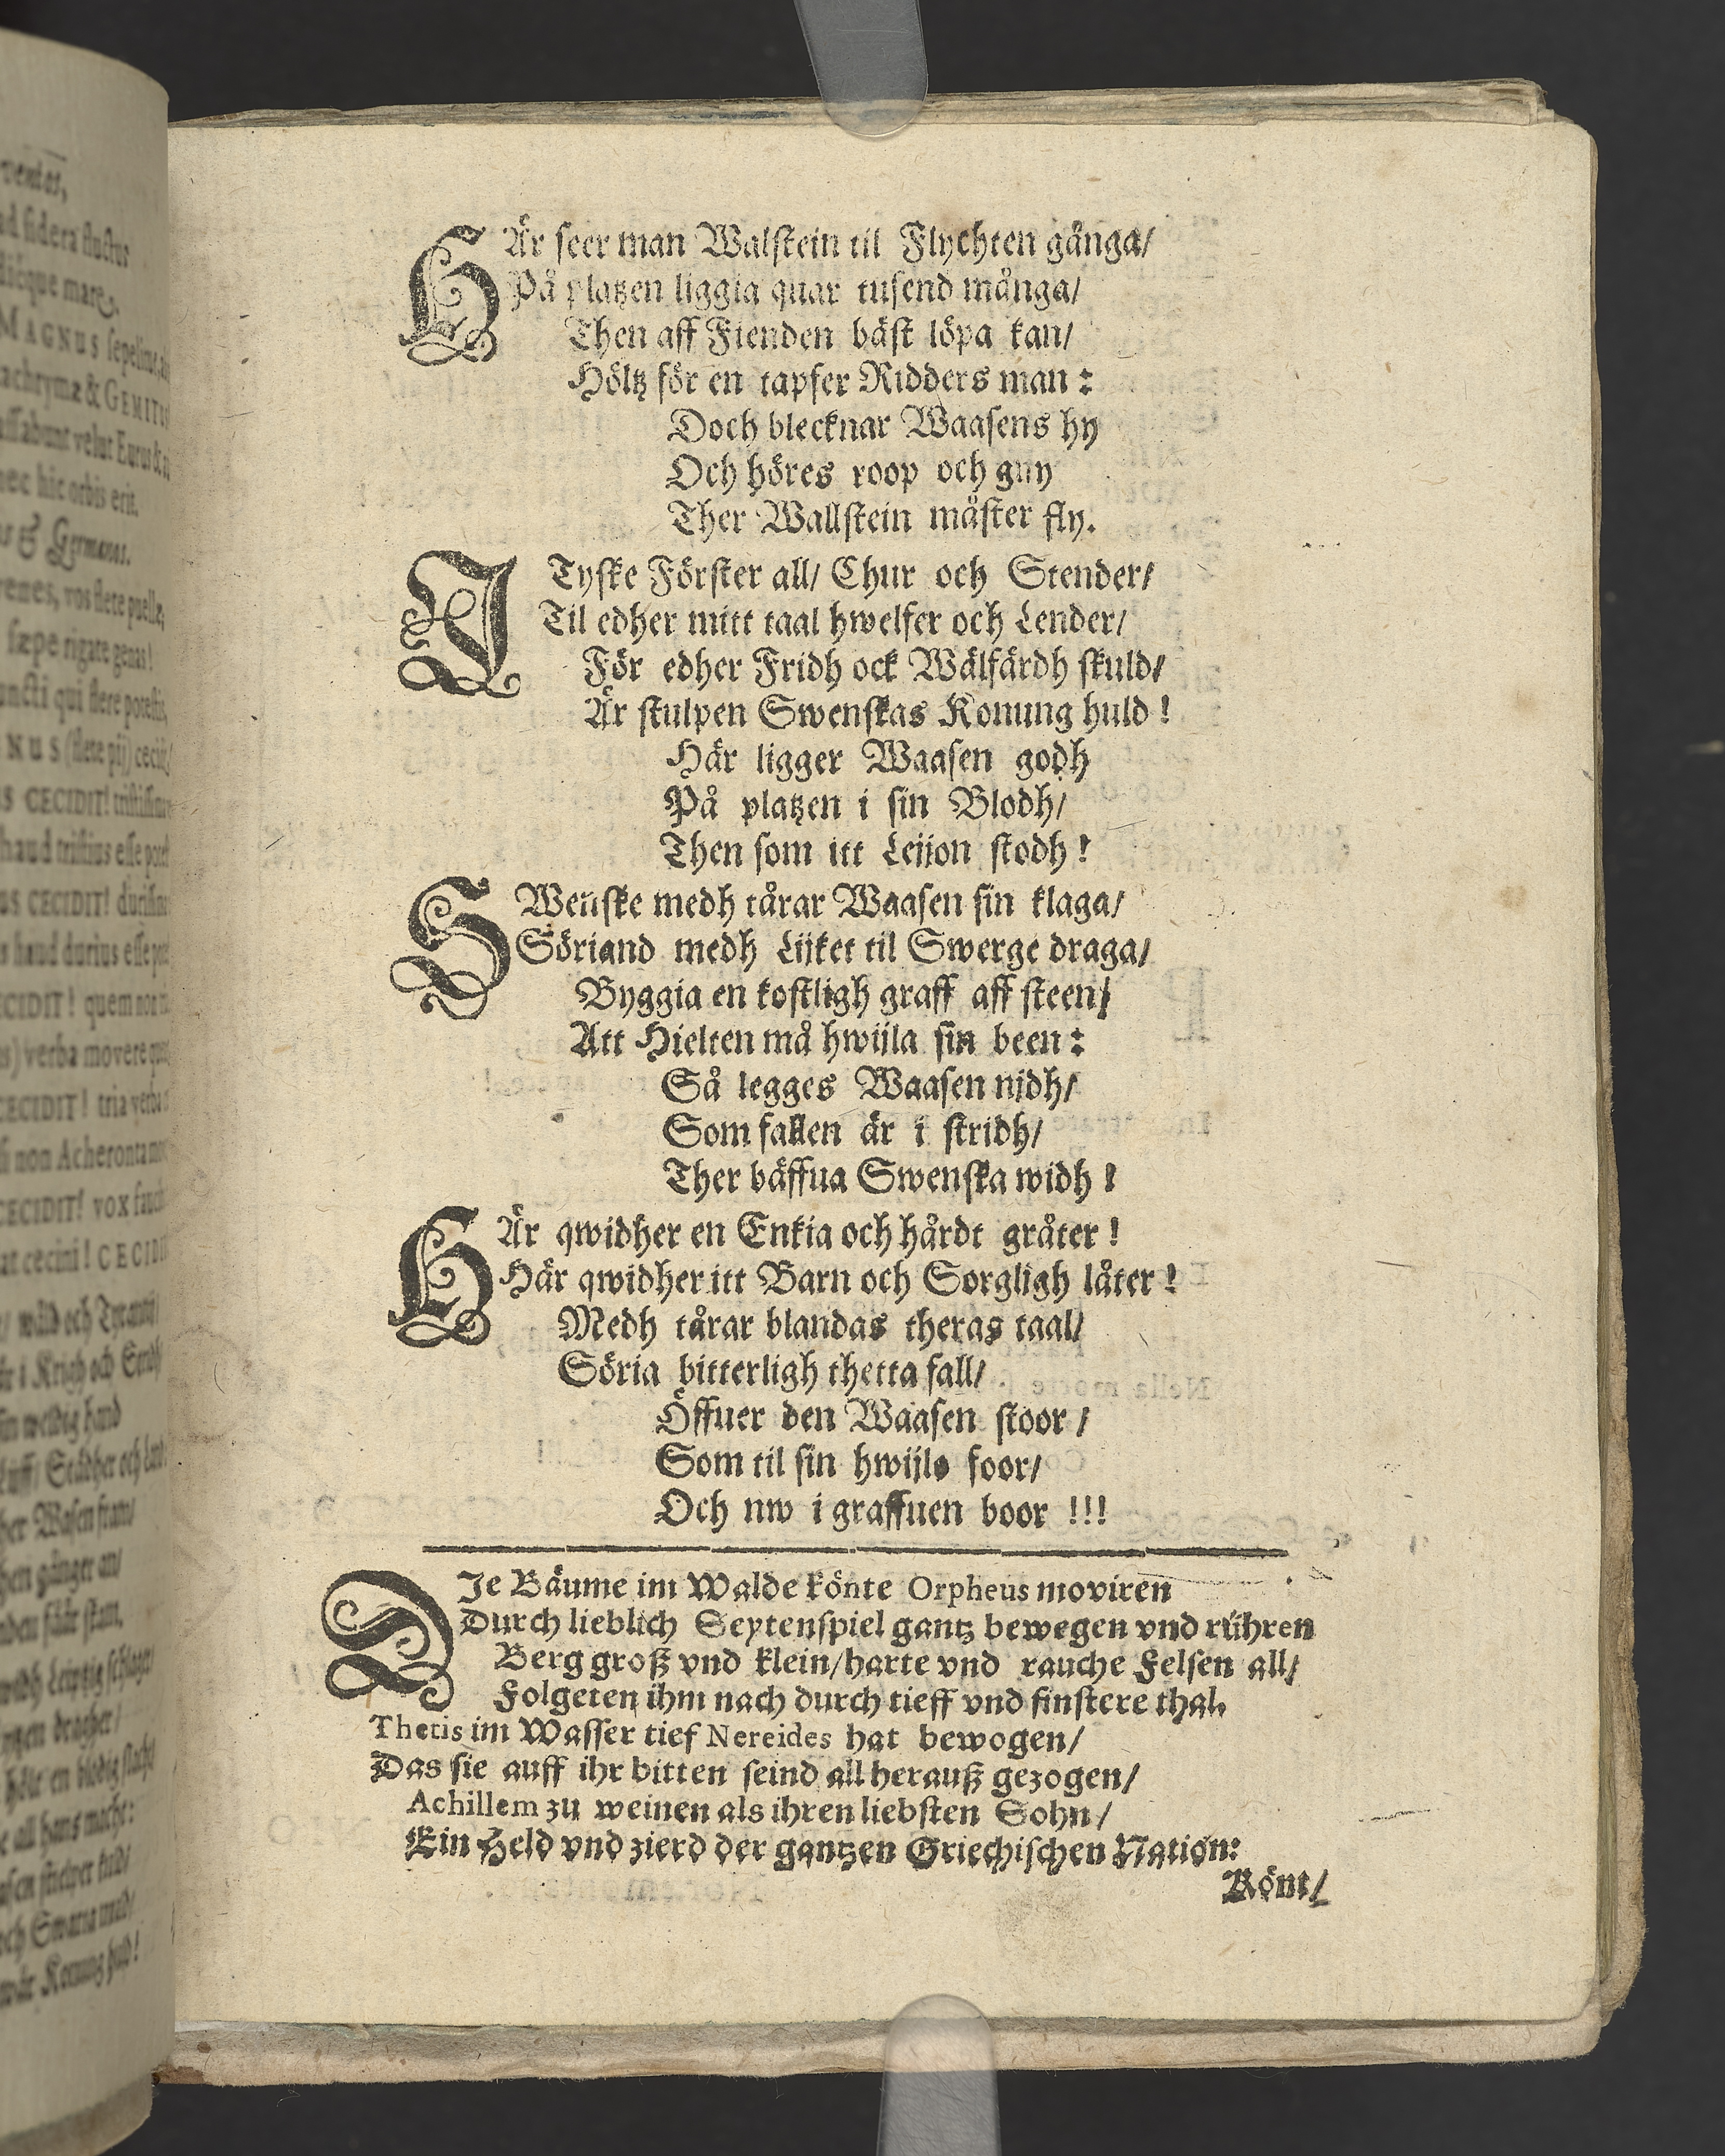 HÄr seer man Walstein til Flychten gånga/
På platzen liggia quar tusend många/
Then aff Fienden bäst löpa kan/
Höltz för en tapfer Ridders man:
Doch blecknar Waasens hy
Och höres roop och gny
Ther Wallstein måster fly.
I Tyske Förster all/ Chur och Stender/
Til edher mitt taal hwelfer och Lender/
För edher Fridh ock Wälfärdh skuld/
Är stulpen Swenskas Konung huld!
Här ligger Waasen godh
På platzen i sin Blodh/
Then som itt Leijon stodh!
SWenske medh tårar Waasen sin klaga/
Söriand medh Lijket til Swerge draga/
Byggia en kostligh graff aff steen/
Att Hielten må hwijla sin been:
Så legges Waasen nidh/
Som fallen är i stridh/
Ther bäffua Swenska widh!
HÄr qwidher en Enkia och hårdt gråter!
Här qwidher itt Barn och Sorgligh låter!
Medh tårar blandas theras taal/
Söria bitterligh thetta fall/
Öffuer den Waasen stoor/
Som til sin hwijlo foor/
Och nw i graffuen boor!!!
DJe Bäume im Walde könte Orpheus moviren
Durch lieblich Seytenspiel gantz bewegen vnd rühren
Berg groß vnd klein/harte vnd rauche Felsen all/
Folgeten ihm nach durch tieff vnd finstere thal.
Thetis im Wasser tief Nereides hat bewogen/
Das sie auff ihr bitten seind all herauß gezogen/
Achillem zu weinen als ihren liebsten Sohn/
Ein Held vnd zierd der gantzen Griechischen Nation:
Könt/